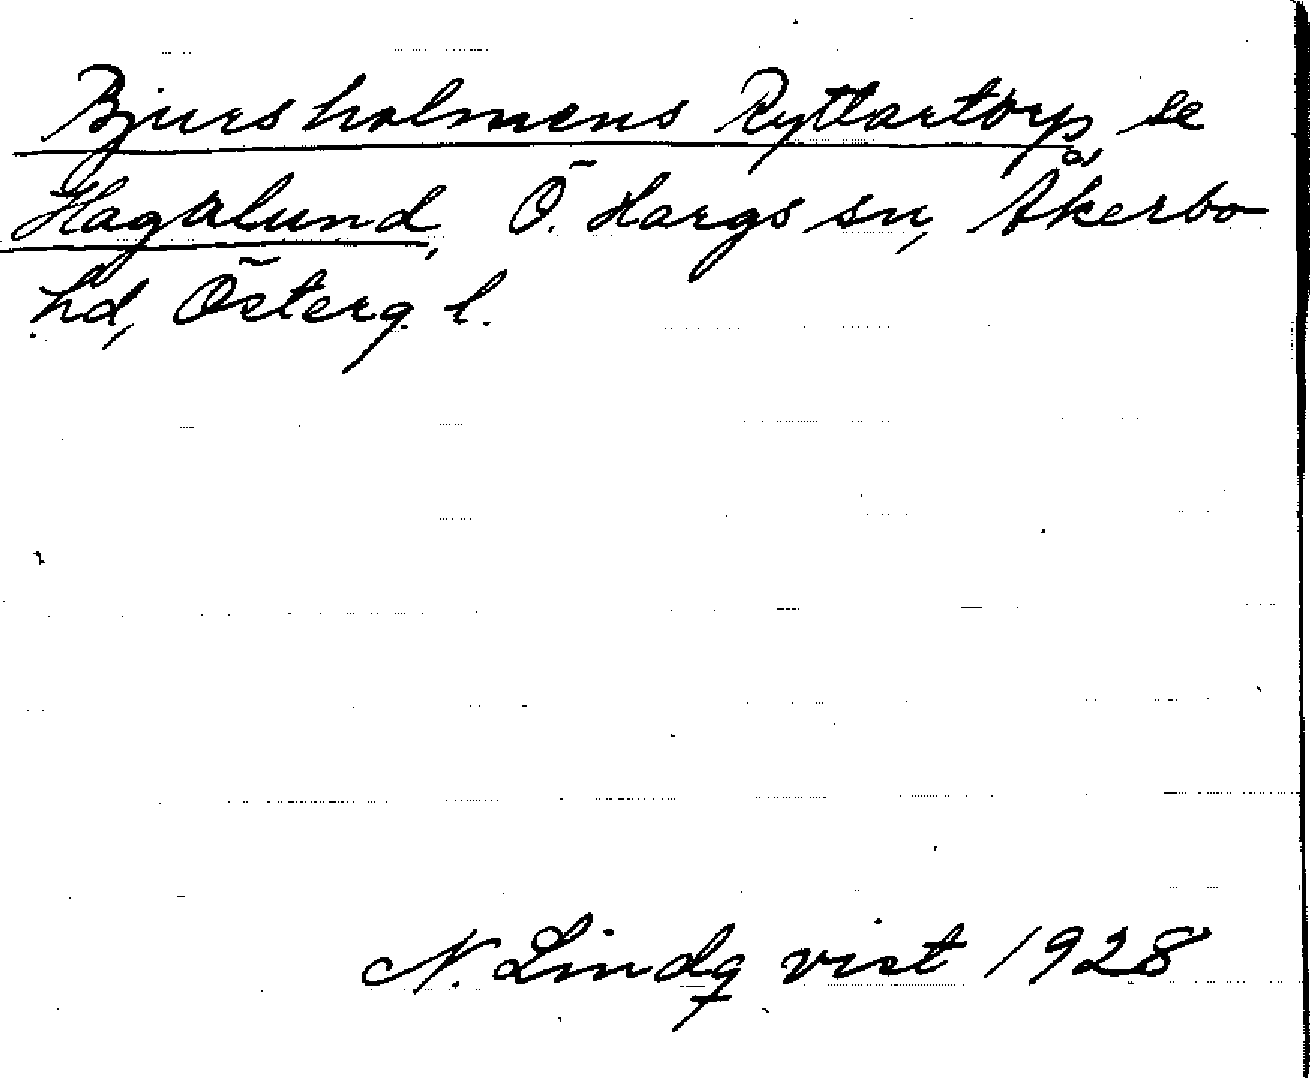 Bjursholmens Ryttartorp se
Hagalund, Ö. Hargs sn, Åkerbo
hd, Österg. l.
N. Lindqvist 1928